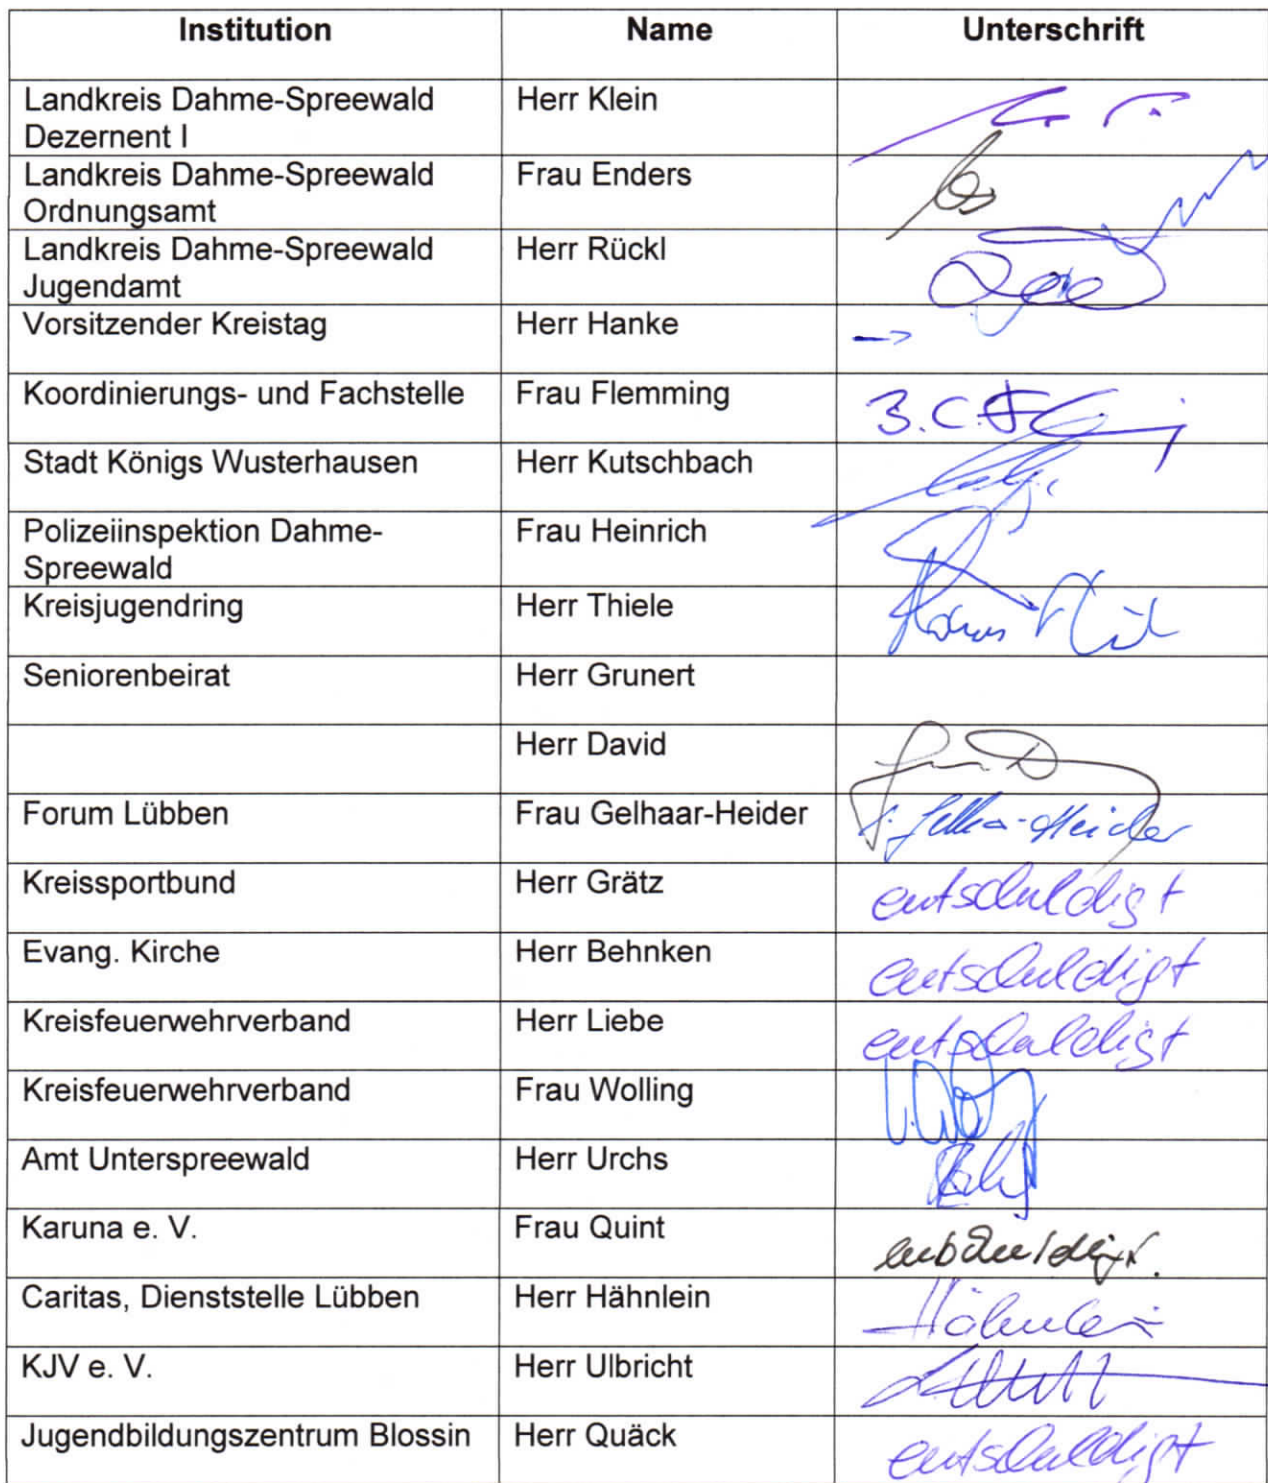 Institution Name Unterschrift
Landkreis Dahme-Spreewald Herr Klein
Dezernent I
Landkreis Dahme-Spreewald Frau Enders
Ordnungsamt
Landkreis Dahme-Spreewald Herr Rückl
Jugendamt
Vorsitzender Kreistag Herr Hanke →
Koordinierungs- und Fachstelle Frau Flemming
Stadt Königs Wusterhausen Herr Kutschbach
Polizeiinspektion Dahme- Frau Heinrich
Spreewald
Kreisjugendring Herr Thiele
Seniorenbeirat Herr Grunert
Herr David
Forum Lübben Frau Gelhaar-Heider
Kreissportbund Herr Grätz entschuldigt
Evang. Kirche Herr Behnken entschuldigt
Kreisfeuerwehrverband Herr Liebe entschuldigt
Kreisfeuerwehrverband Frau Wolling
Amt Unterspreewald Herr Urchs
Karuna e. V. Frau Quint entschuldigt.
Caritas, Dienststelle Lübben Herr Hähnlein Hähnlein
KJV e. V. Herr Ulbricht
Jugendbildungszentrum Blossin Herr Quäck entschuldigt